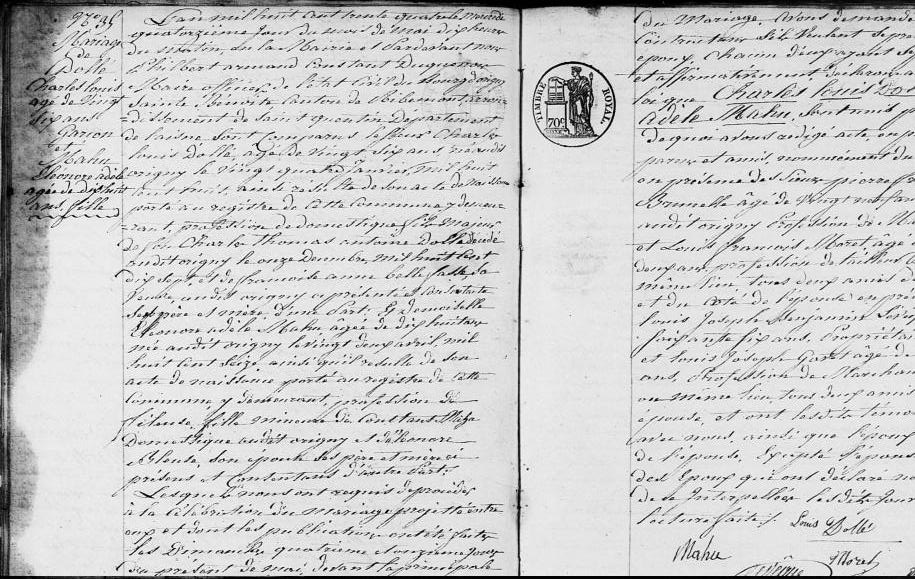 Mariage
de
Dollé
Charles Louis
agé de vingt
six ans
Garçon
et
Mahu
Eléonore adèle
agée de dix huit
ans, fille
L'an mil huit cent trente quatre le mercredi
quatorzième jour du mois de mai dix heures
du matin, en la Mairie et pardevant nous
Philbert armand Constant Duquenoy
Maire officier de l'état Civil de Bourg d'origny
Sainte Benoite, Canton de Ribemont, arron-
dissement de saint quentin Département
de l'aisne, sont comparus le sieur Charles
louis dollé, agé de vingt six ans né audit
origny le vingt quatre Janvier, mil huit
cent huit, ainsi résulte de son acte de Naissance
porté au registre de cette Commune y demeu-
rant, profession de domestique, fils Majeur
de feu Charles Thomas antoine Dollé décédé
audit origny le onze Décembre mil huit cent
dix sept, et de françoise anne belle sa
veuve, audit origny ci présente et consentante
ses père et mère d'une Part. Et Demoiselle
Eléonore adèle Mahu âgée de dix huit ans
née audit origny le vingt deux avril mil
huit Cent Seize, ainsi qu'il résulte de son
acte de naissance porté au registre de cette
Commune y demeurant, profession de
fileuse, fille mineure de Constant Mahu
Domestique audit origny et d'éléonore
son épouse ses père et mère ci
présens et Consentans d'autre Part.
Lesquels nous ont requis de procéder
à la Célébration du mariage projetté entre
eux et dont les publications ont été faites
les Dimanches quatrième et onzième jours
du présent de mai, devant la principale
TIMBRE ROYAL.
70c
du Mariage. avons demandé
Contractans s'ils veulent se pren
époux, chacun d'eux ayant
et affirmativement déclarons a
loi que Charles Louis Do
adèle Mahu, sont unis p
de quoi avons rédigé acte, en p
parens et amis, nommément du
en présence des Sieurs pierre fr
Brunelle âgé de vingt neuf an
audit origny Profession de M
et Louis françois Moret, âgé
deux ans, profession de tailleur
même lieu, tous deux amis d
et du Coté de l'épouse en pré
louis Joseph Benjamin
soixante six ans, Propriétai
et louis Joseph âgé de
ans, Profession de Marchan
au même lieu tous deux amis
épouse, et ont lesdits témo
avec nous, ainsi que l'épou
de l'épouse, Excepté
des Epoux qui ont déclaré n
de ce Interpellés
lecture faite.
Louis Dollé
Mahu
Moret